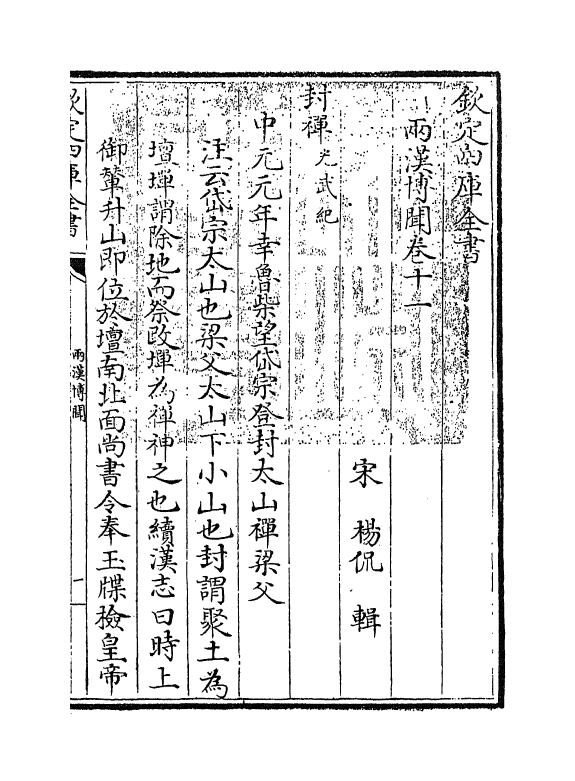 欽定四庫全書
兩漢博聞卷十一
宋 楊侃 輯
封禪光武紀
中元元年幸魯柴望岱宗登封太山禪梁父
注云岱宗太山也梁父太山下小山也封謂聚土為
壇墠謂除地而祭改墠為禪神之也續漢志曰時上
御輦升山即位於壇南北面尚書令奉玉牒檢皇帝
欽定四庫全書
兩漢博聞
一